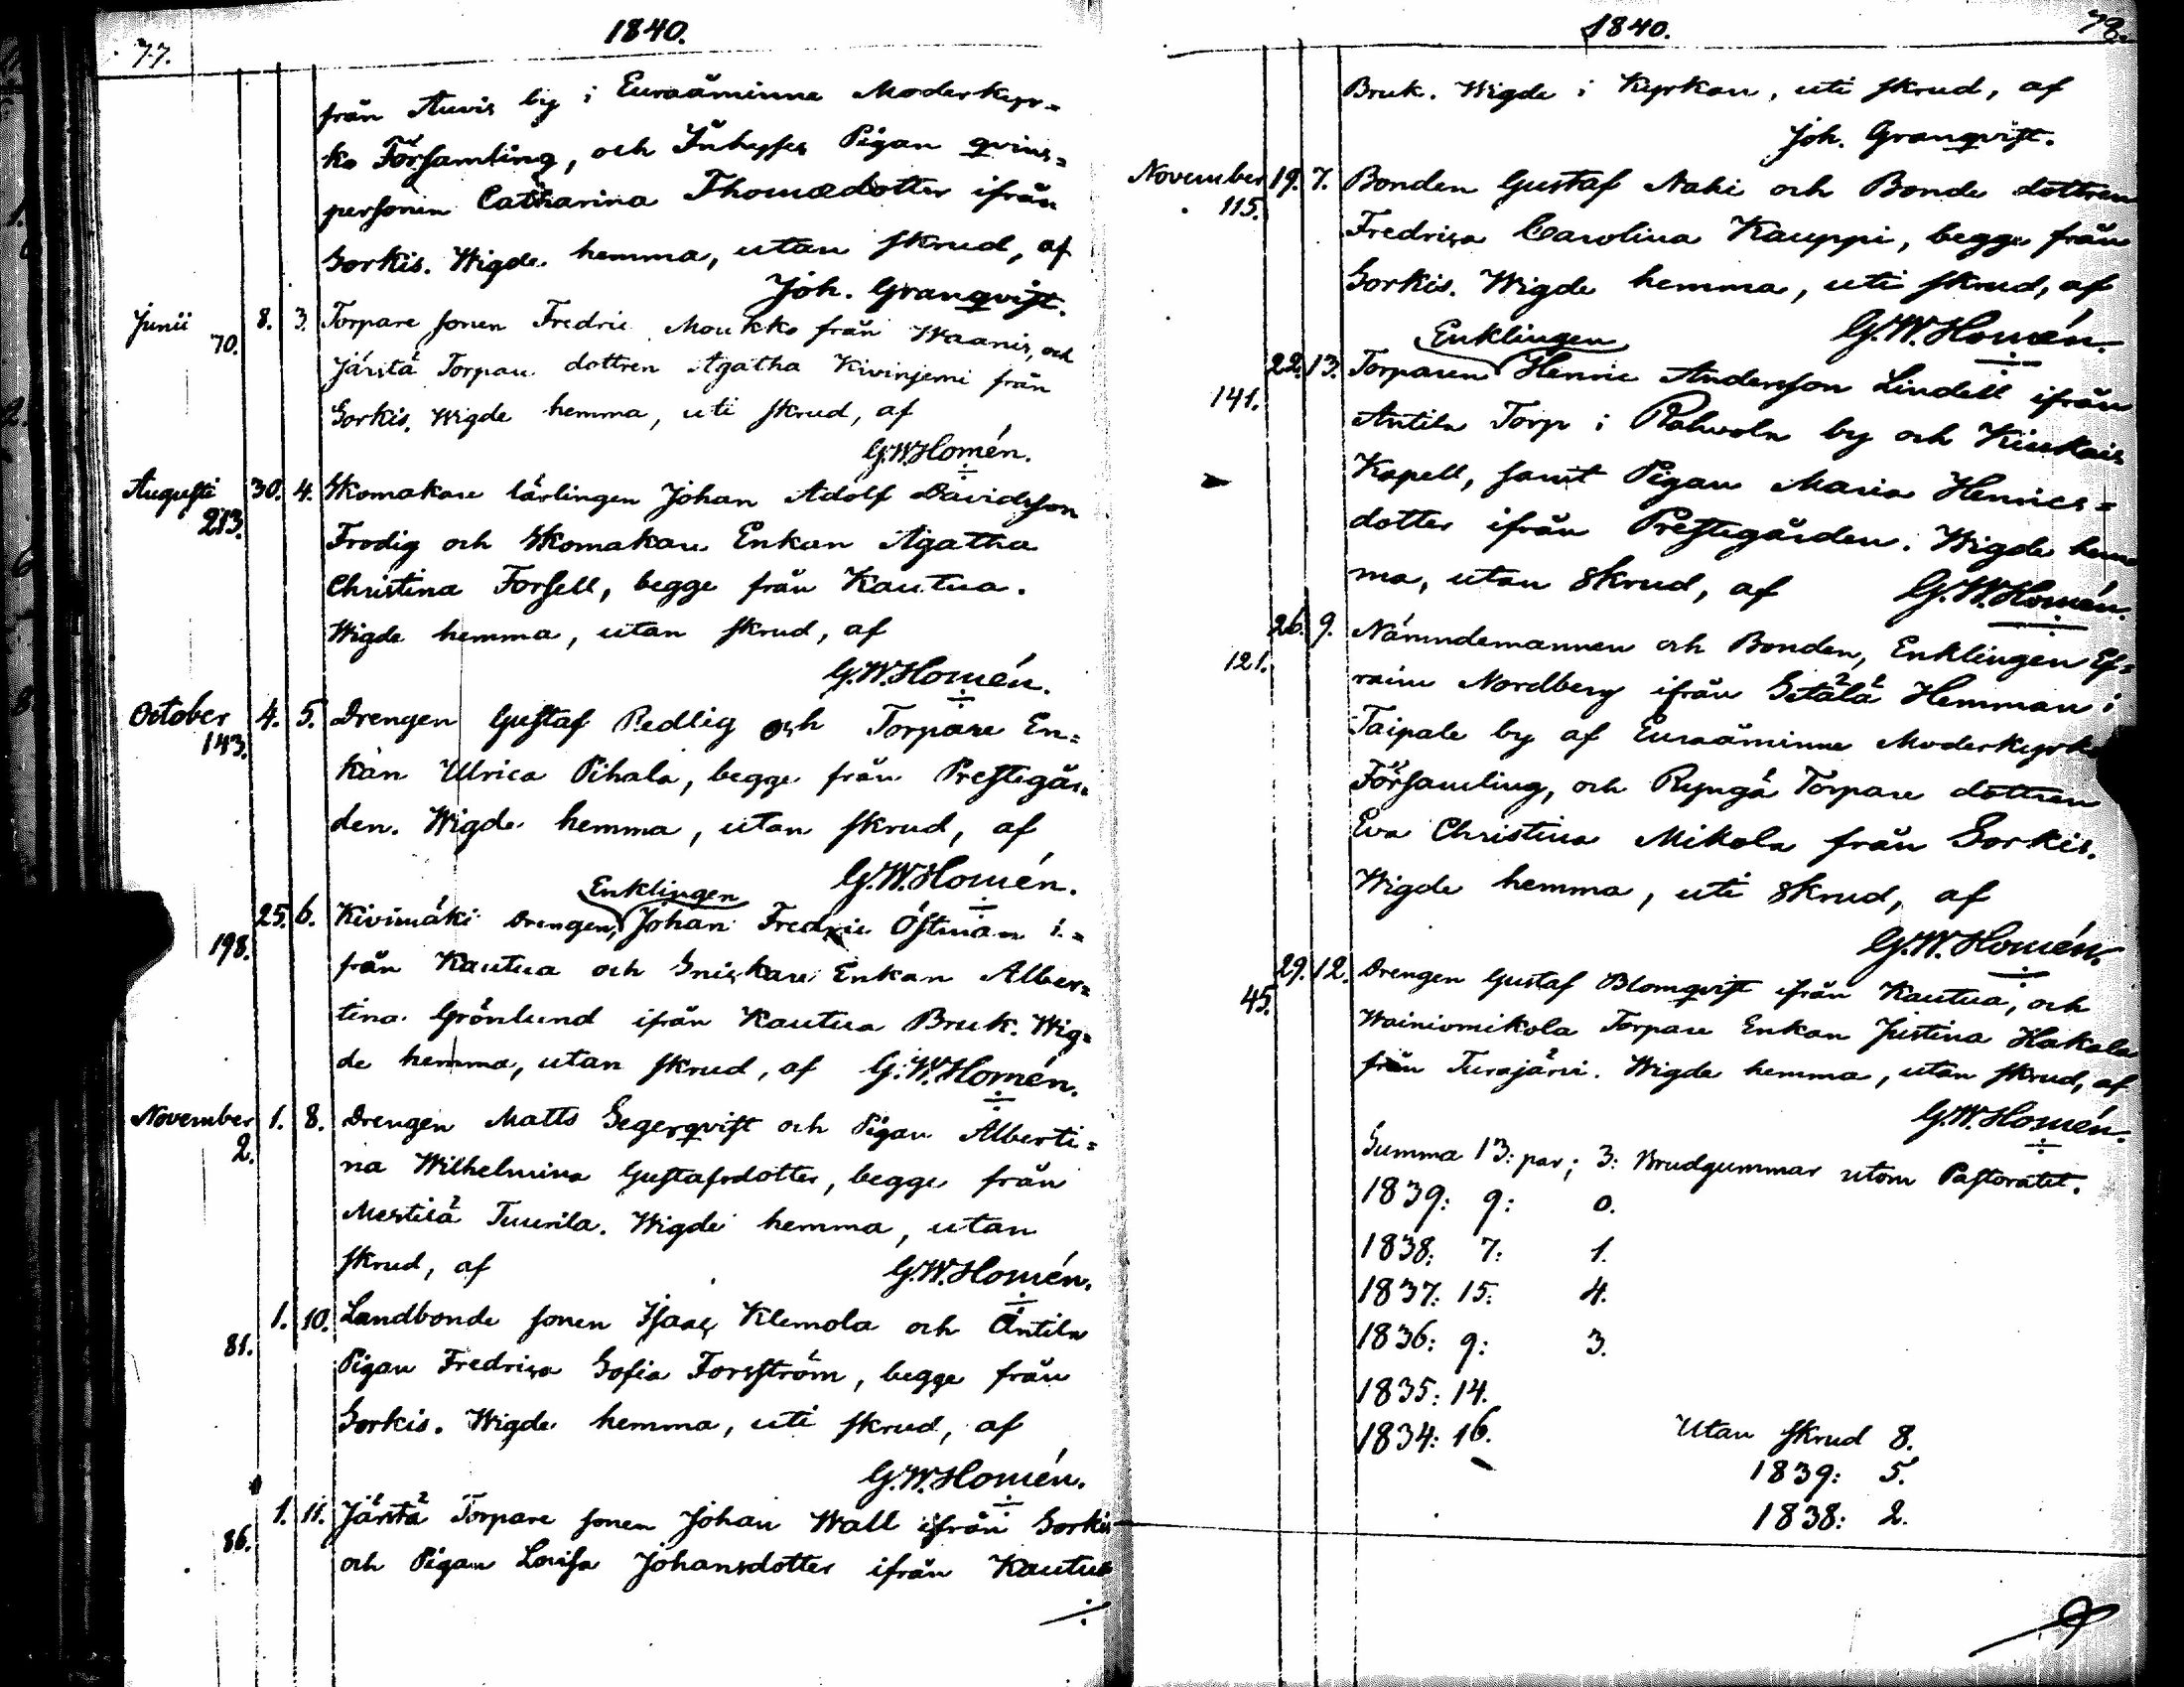 77.
1840.
från Auvis by i Euraåminne Moderkyr=
ko Församling, och Inhyses Pigan qvins=
personen Catharina Thomædotter ifrån
Sorkis. Wigde hemma, utan skrud, af
Joh. Granqvist.
Junii 8. 3. Torpare sonen Fredric Moukko från Waanis, och
70. Järstä Torpare dottren Agatha Kiviniemi från
Sorkis. Wigde hemma, uti skrud, af
G.W.Homén.
Augusti 30. 4. Skomakare lärlingen Johan Adolf Davidsson
213. Frodig och Skomakare Enkan Agatha
Christina Forsell, begge från Kautua.
Wigde hemma, utan skrud, af
G.W.Homén.
October 4. 5. Drengen Gustaf Redlig och Torpare En=
143. kan Ulrica Pihala, begge från Prestegår=
den. Wigde hemma, utan skrud, af
G.W.Homén.
Enklingen
25. 6. Kivimäki Drengen, Johan Fredric Östman i=
198. från Kautua och Snickare Enkan Alber=
tina Grönlund ifrån Kautua Bruk. Wig=
de hemma, utan skrud, af G.W.Homén.
November 1. 8. Drengen Matts Segerqvist och Pigan Alberti=
2. na Wilhelmina Gustafsdotter, begge från
Mestilä Tuurila. Wigde hemma, utan
skrud, af G.W.Homén.
1. 10. Landbonde sonen Isaac Klemola och Antila
81. Pigan Fredrica Sofia Forsström, begge från
Sorkis. Wigde hemma, uti skrud, af
G.W.Homén.
1. 11. Järstä Torpare sonen Johan Wall ifrån Sorkis
86. och Pigan Lovisa Johansdotter ifrån Kautua
1840.
78.
Bruk. Wigde i Kyrkan, uti skrud, af
Joh. Granqvist.
November 19. 7. Bonden Gustaf Nahi och Bonde dottren
115. Fredrica Carolina Kauppi, begge från
Sorkis. Wigde hemma, uti skrud, af
G.W.Homén.
Enklingen
22. 13. Torparen Henric Andersson Lindell ifrån
141. Antila Torp i Rahvola by och Kiukais
Kapell, samt Pigan Maria Henrics=
dotter ifrån Prestegården. Wigde hem=
ma, utan skrud, af G.W.Homén.
26. 9. Nämndemannen och Bonden, Enklingen Ef=
121. raim Nordberg ifrån Setälä Hemman i
Taipale by af Euraåminne Moderkyrko
Församling, och Ryngä Torpare dottren
Eva Christina Mikola från Sorkis.
Wigde hemma, uti skrud, af
G.W.Homén.
29. 12. Drengen Gustaf Blomqvist ifrån Kautua, och
45. Wainiomikola Torpare Enkan Justina Hakala
från Turajärvi. Wigde hemma, utan skrud, af
G.W.Homén.
Summa 13: par; 3: Brudgummar utom Pastoratet.
1839: 9: 0.
1838: 7: 1.
1837: 15: 4.
1836: 9: 3.
1835: 14.
1834: 16. Utan skrud 8.
1839: 5.
1838: 2.